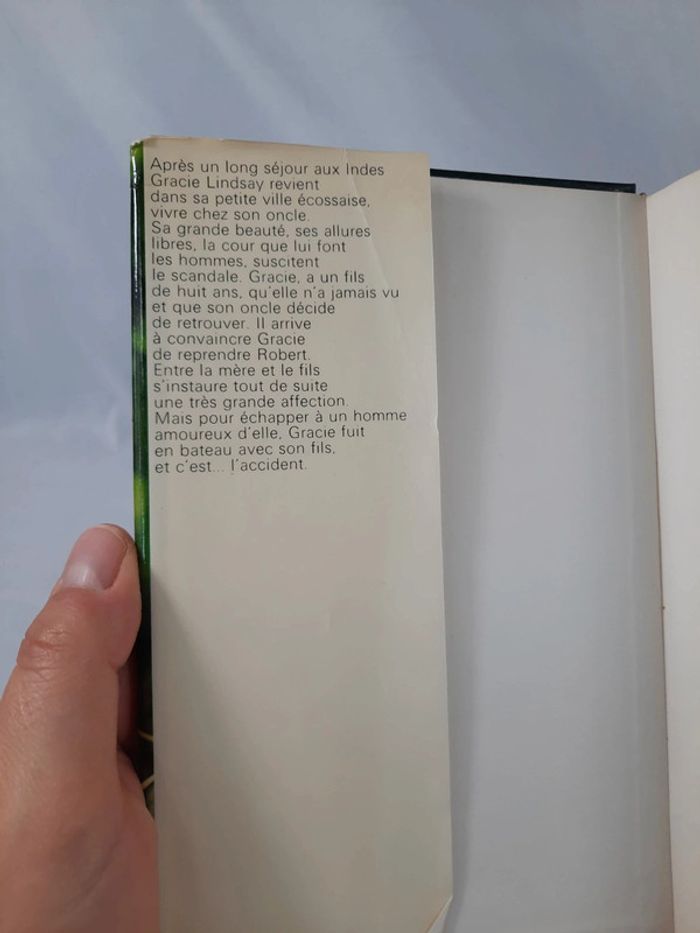 Après un long séjour aux Indes
Gracie Lindsay revient
dans sa petite ville écossaise,
vivre chez son oncle.
Sa grande beauté, ses allures
libres, la cour que lui font
les hommes, suscitent
le scandale. Gracie, a un fils
de huit ans, qu'elle n'a jamais vu
et que son oncle décide
de retrouver. Il arrive
à convaincre Gracie
de reprendre Robert.
Entre la mère et le fils
s'instaure tout de suite
une très grande affection.
Mais pour échapper à un homme
amoureux d'elle, Gracie fuit
en bateau avec son fils,
et c'est... l'accident.